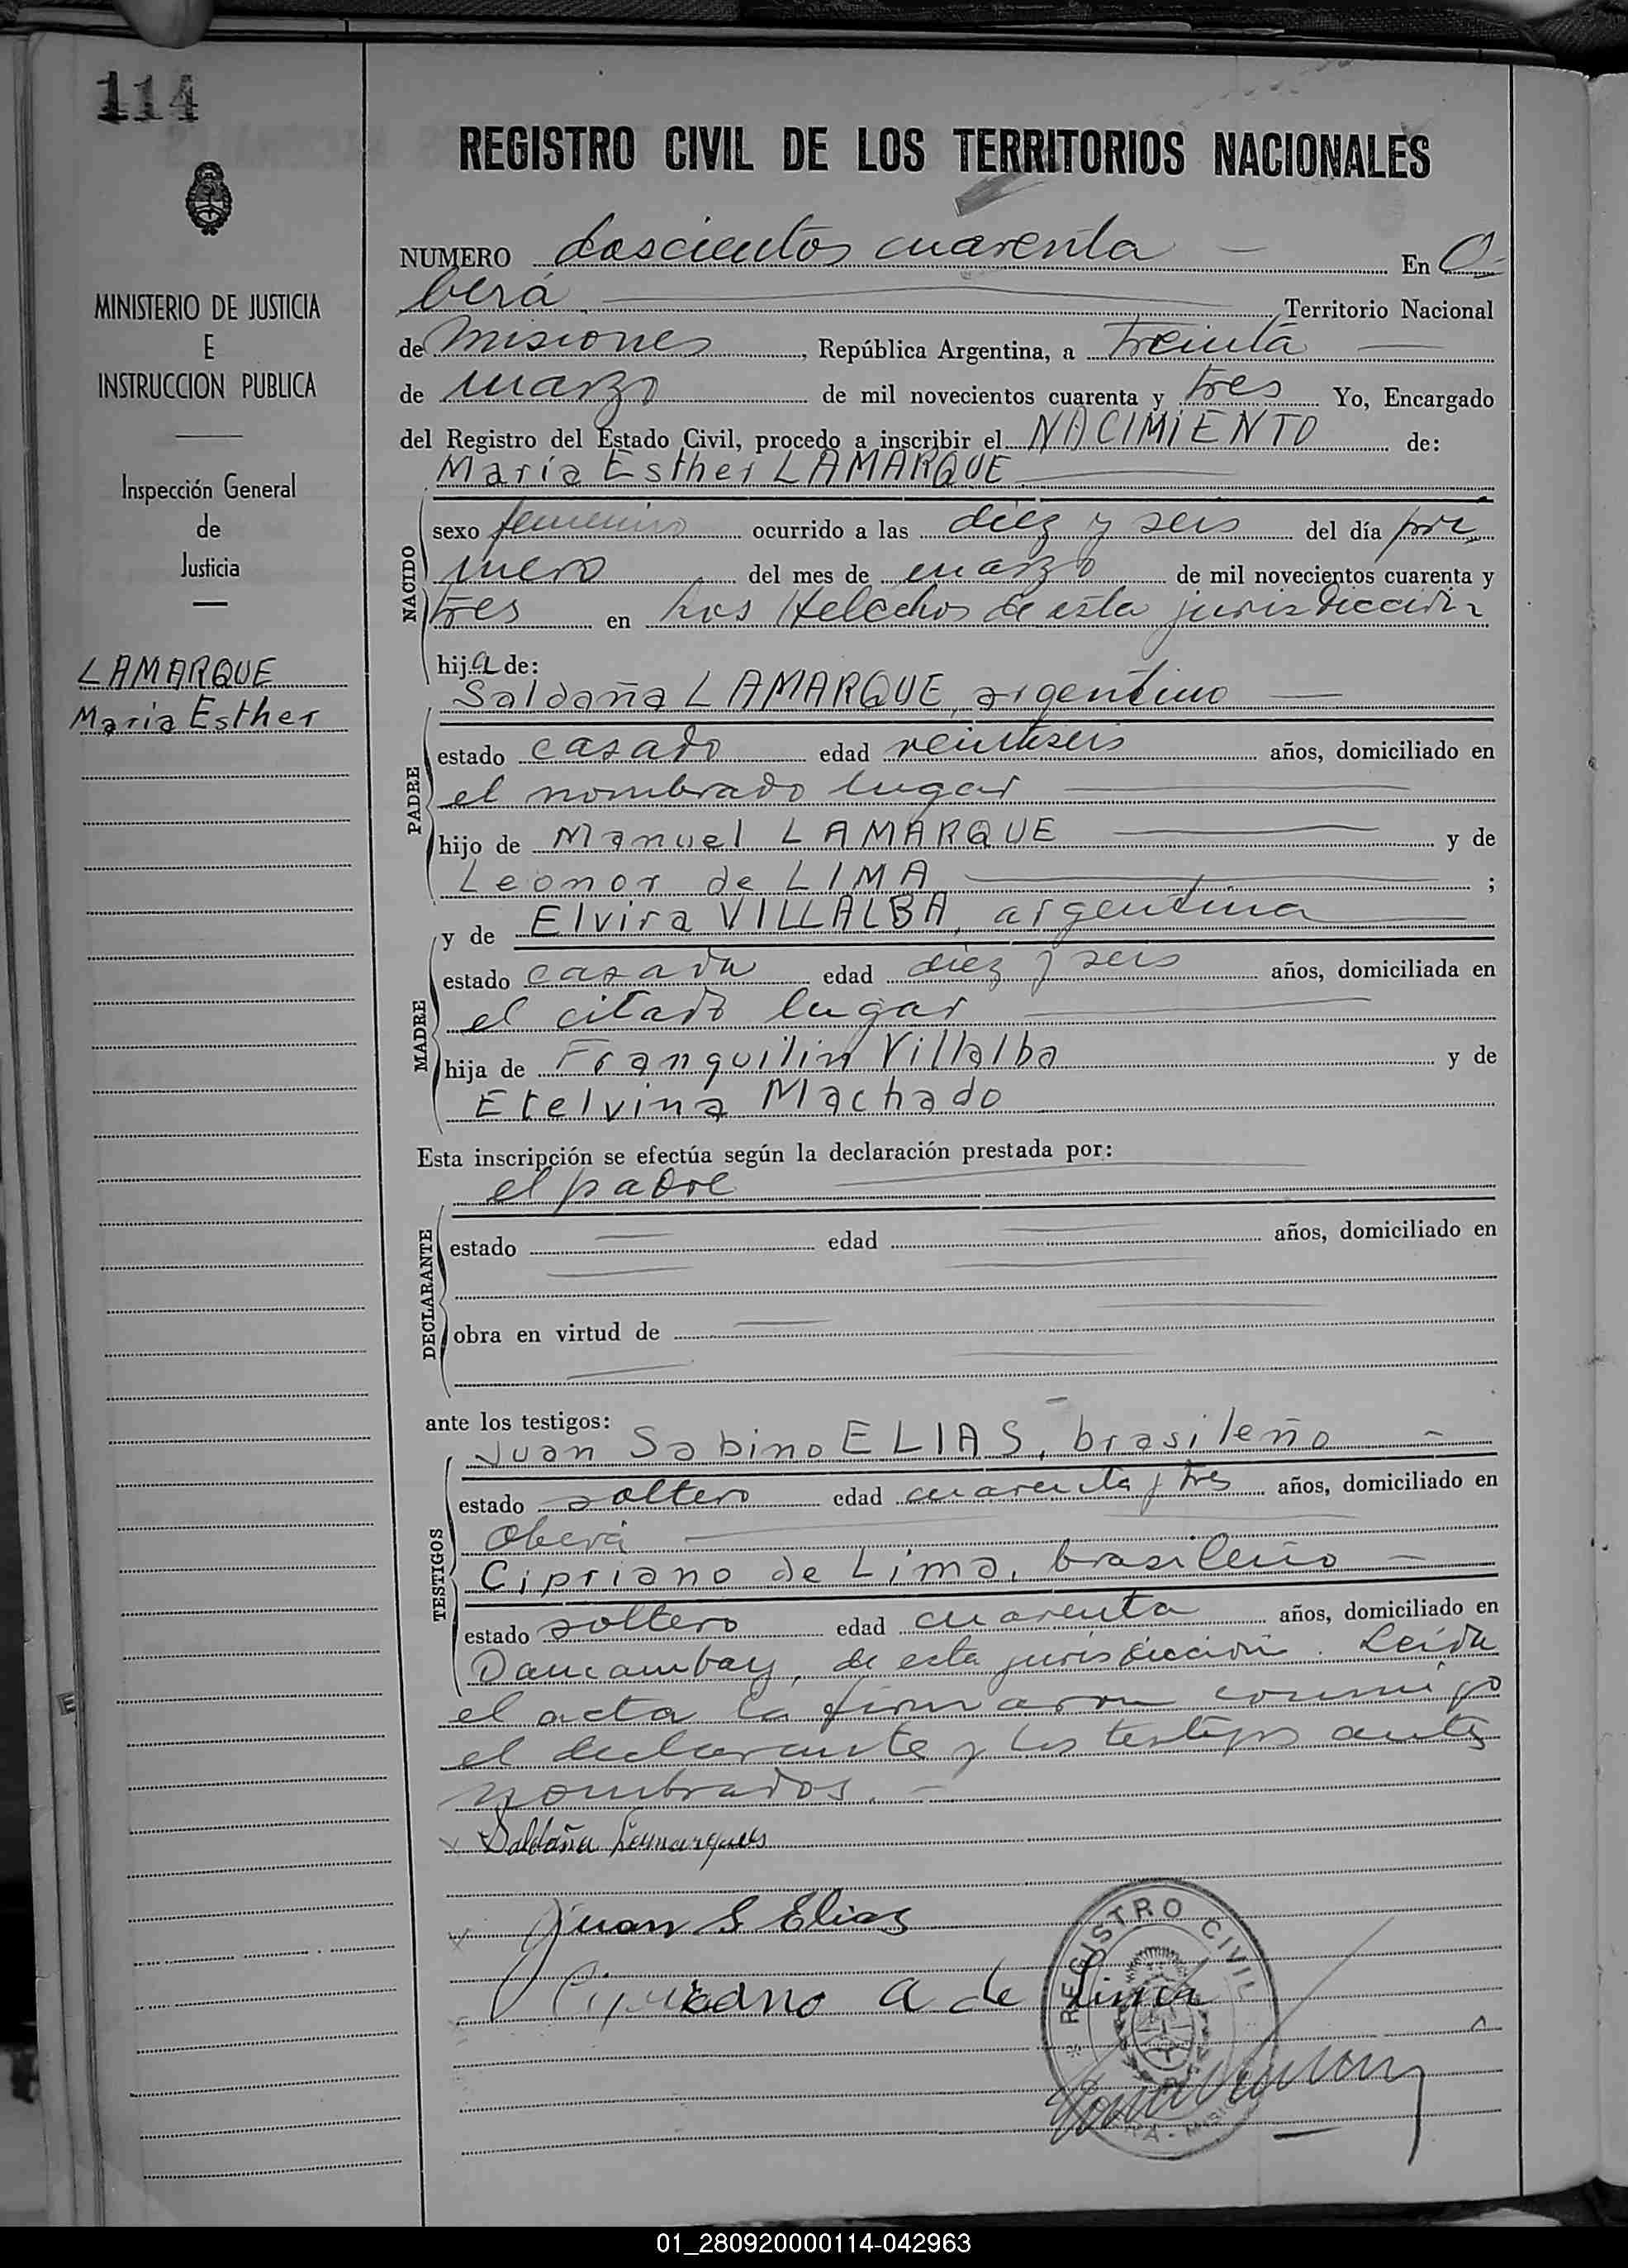 114
MINISTERIO DE JUSTICIA
E
INSTRUCCION PUBLICA
Inspección General
de
Justicia
LAMARQUE
Maria Esther
REGISTRO CIVIL DE LOS TERRITORIOS NACIONALES
NUMERO doscientos cuarenta — En O-
berá Territorio Nacional
de Misiones, República Argentina, a treinta
de marzo de mil novecientos cuarenta y tres Yo, Encargado
del Registro del Estado Civil, procedo a inscribir el NACIMIENTO de:
María Esther LAMARQUE
NACIDO
sexo femenino ocurrido a las diez y seis del día pri
mero del mes de marzo de mil novecientos cuarenta y
tres en Los Helechos de esta jurisdicción
hija de:
PADRE
Saldaña LAMARQUE, argentino
estado casado edad veintiseis años, domiciliado en
el nombrado lugar
hijo de Manuel LAMARQUE y de
Leonor de LIMA ;
y de Elvira VILLALBA, argentina
MADRE
estado casada edad diez y seis años, domiciliada en
el citado lugar
hija de Franquilin Villalba y de
Etelvina Machado
Esta inscripción se efectúa según la declaración prestada por:
el padre
DECLARANTE
estado edad años, domiciliado en
obra en virtud de
ante los testigos:
TESTIGOS
Juan Sabino ELIAS, brasileño
estado soltero edad cuarenta y tres años, domiciliado en
Oberá
Cipriano de Lima, brasileño
estado soltero edad cuarenta años, domiciliado en
de esta jurisdicción. Leída
el acta la firmaron conmigo
el declarante y los testigos antes
nombrados.
Saldaña Lamarques
Juan S Elias
Cipriano A de Lima
REGISTRO CIVIL
01_280920000114-042963